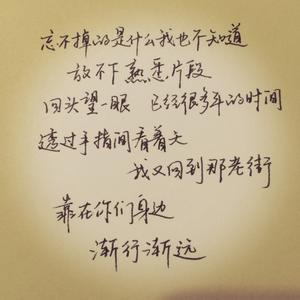 忘不掉的是什么我也不知道
放不下熟悉片段
回头望一眼 已经很多年的时间
透过手指间看着天
我又回到那老街
靠在你们身边
渐行渐远